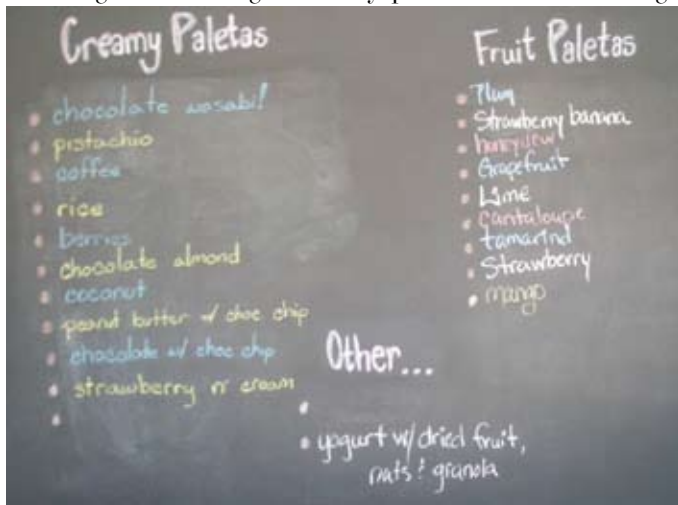 Creamy Paletas
chocolate wasabi!
pistachio
coffee
rice
berries
chocolate almond
coconut
peanut butter w/ choc chip
chocolate w/ choc chip
strawberry n' cream
Fruit Paletas
Plum
Strawberry banana
honeydew
Grapefruit
Lime
cantaloupe
tamarind
Strawberry
mango
Other...
yogurt w/ dried fruit,
nats & granola